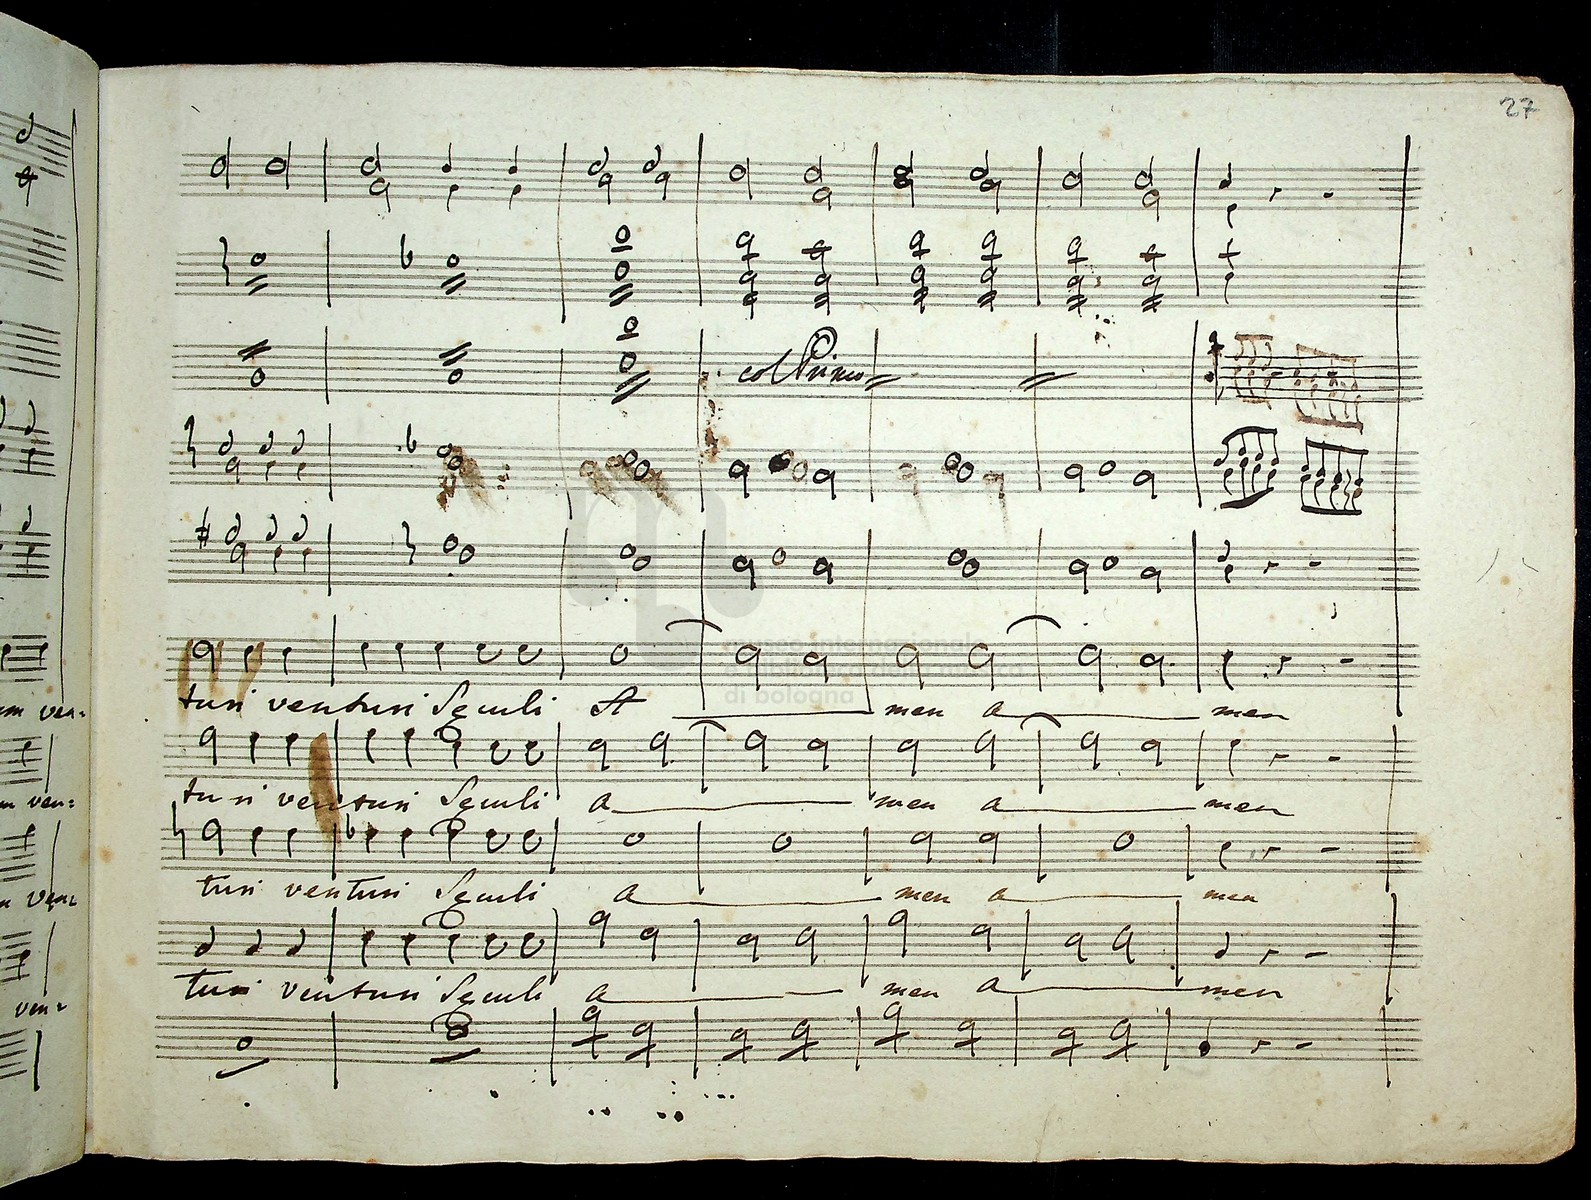 27
col Primo
museo internazionale
e biblioteca della musica
di bologna
turi venturi Seculi A men a men
um ven=
turi venturi Seculi a men a men
m ven=
turi venturi Seculi a men a men
ven=
turi venturi Seculi a men a men
ven=